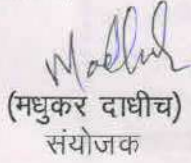 Madhuk
(मधुकर दाधीच)
संयोजक